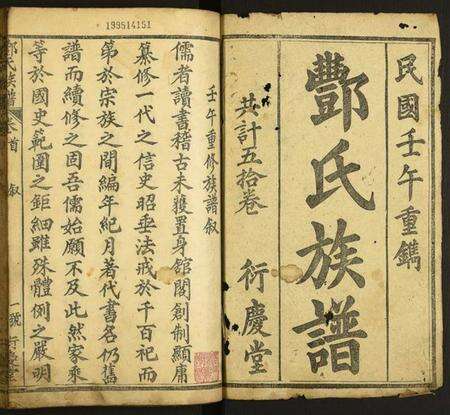 民國壬午重鐫
酆氏族譜
共計五拾卷
衍慶堂
139514151
壬午重修族譜叙
儒者讀書稽古未獲置身館閣創制顯庸
纂修一代之信史昭垂法戒於千百祀而
第於宗族之間編年紀月著代書名仍舊
譜而續修之固吾儒始願不及此然家乘
等於國史範圍之鉅細雖殊體例之嚴明
卷首
叙
一號